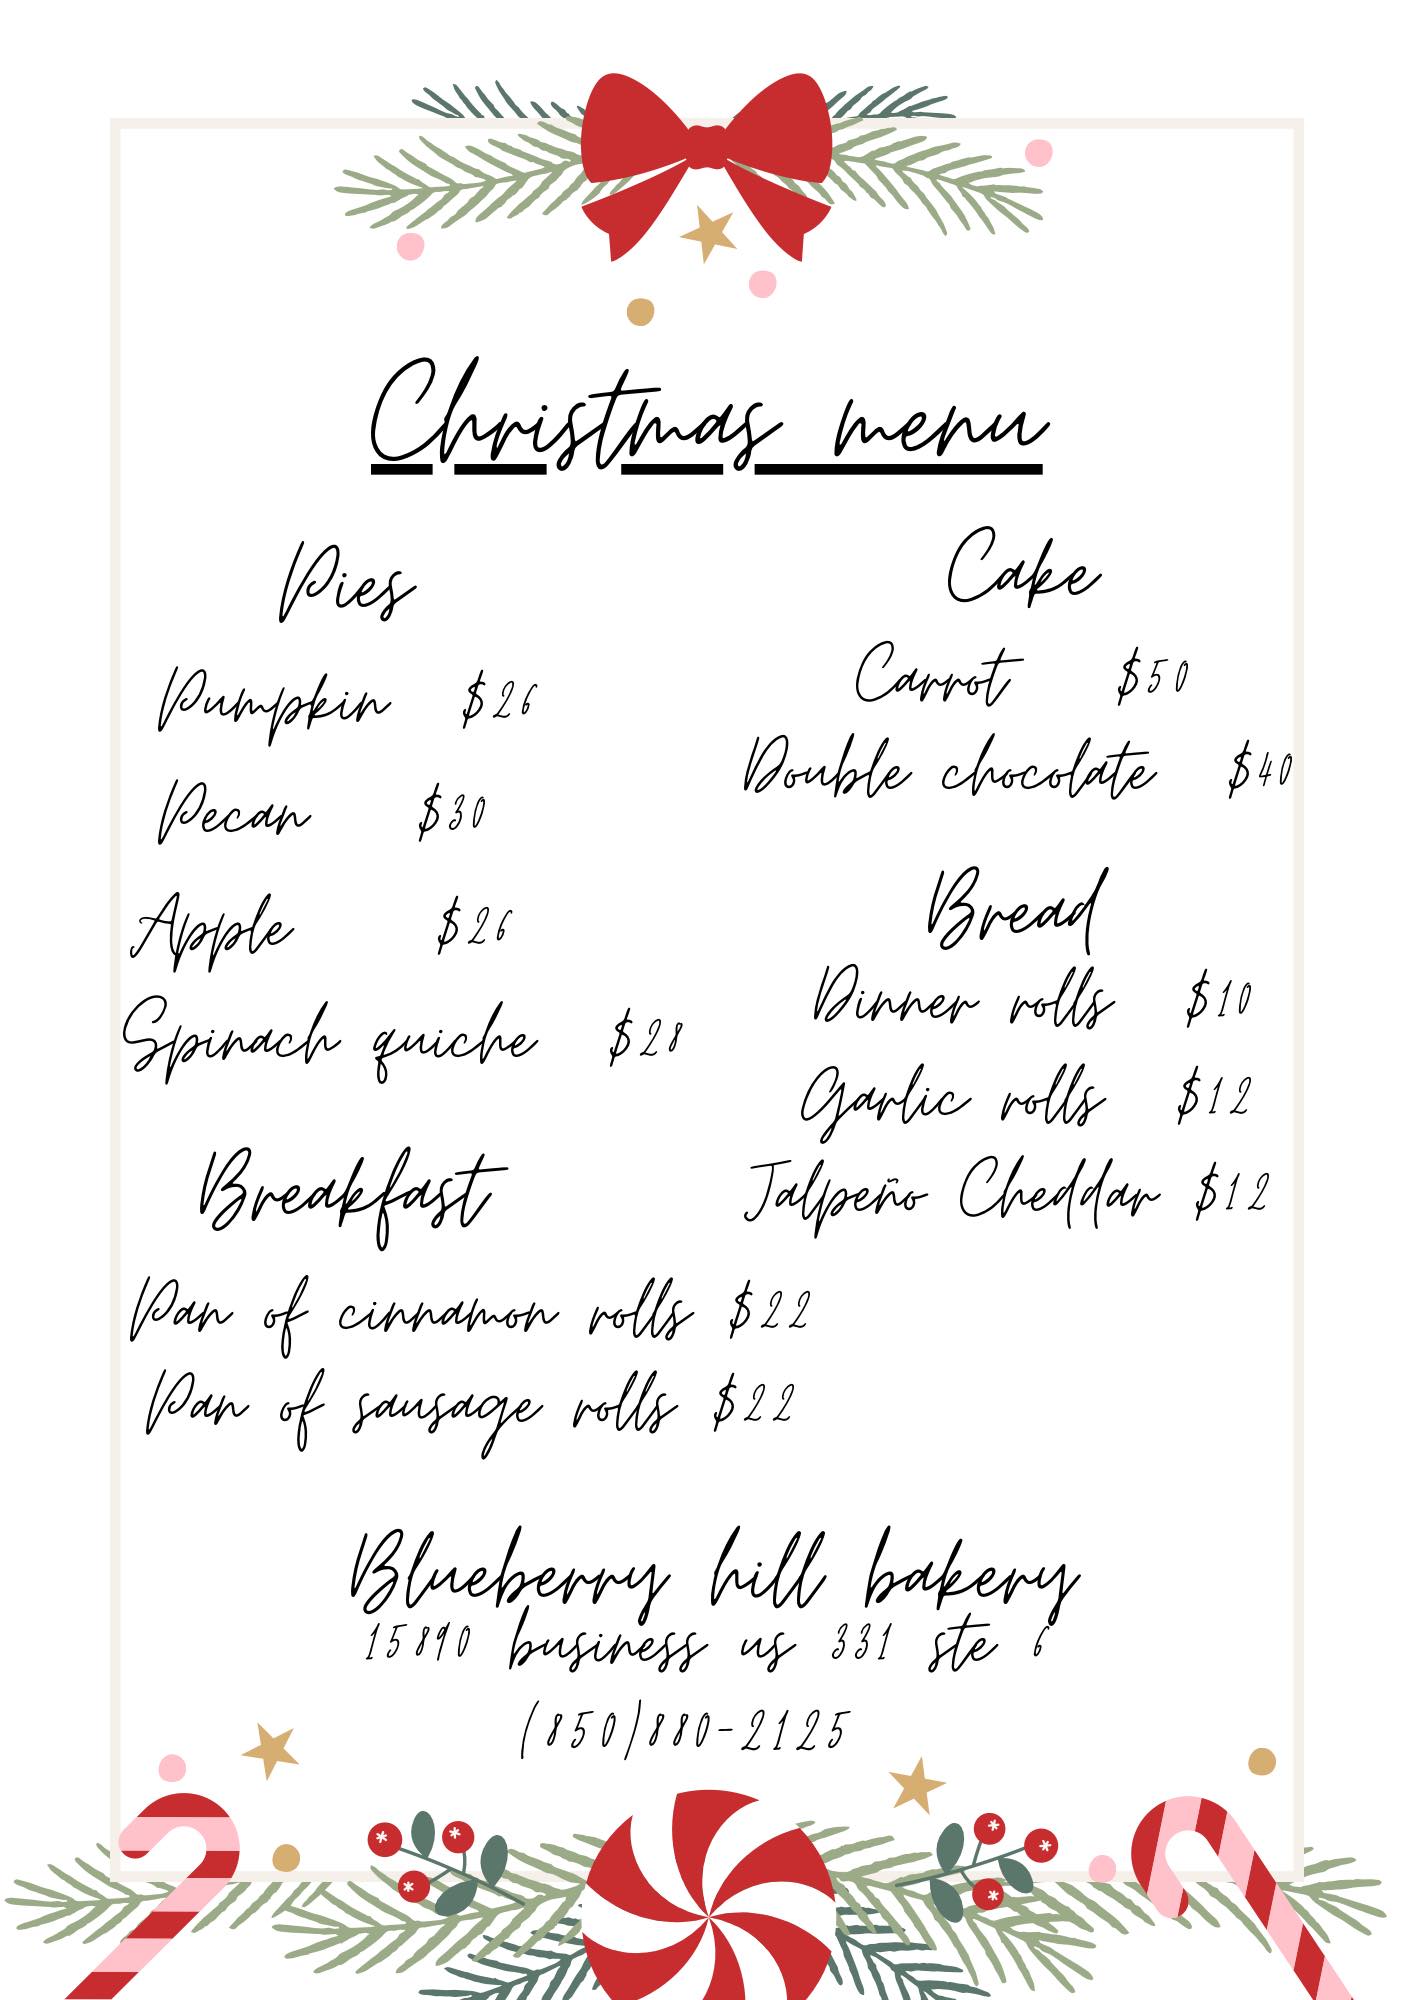 Christmas menu
Pies
Pumpkin $26
Pecan $30
Apple $26
Spinach quiche $28
Breakfast
Pan of cinnamon rolls $22
Pan of sausage rolls $22
Cake
Carrot $50
Double chocolate $40
Bread
Dinner rolls $10
Garlic rolls $12
Jalpeño Cheddar $12
Blueberry hill bakery
15890 business us 331 ste 6
(850)880-2125